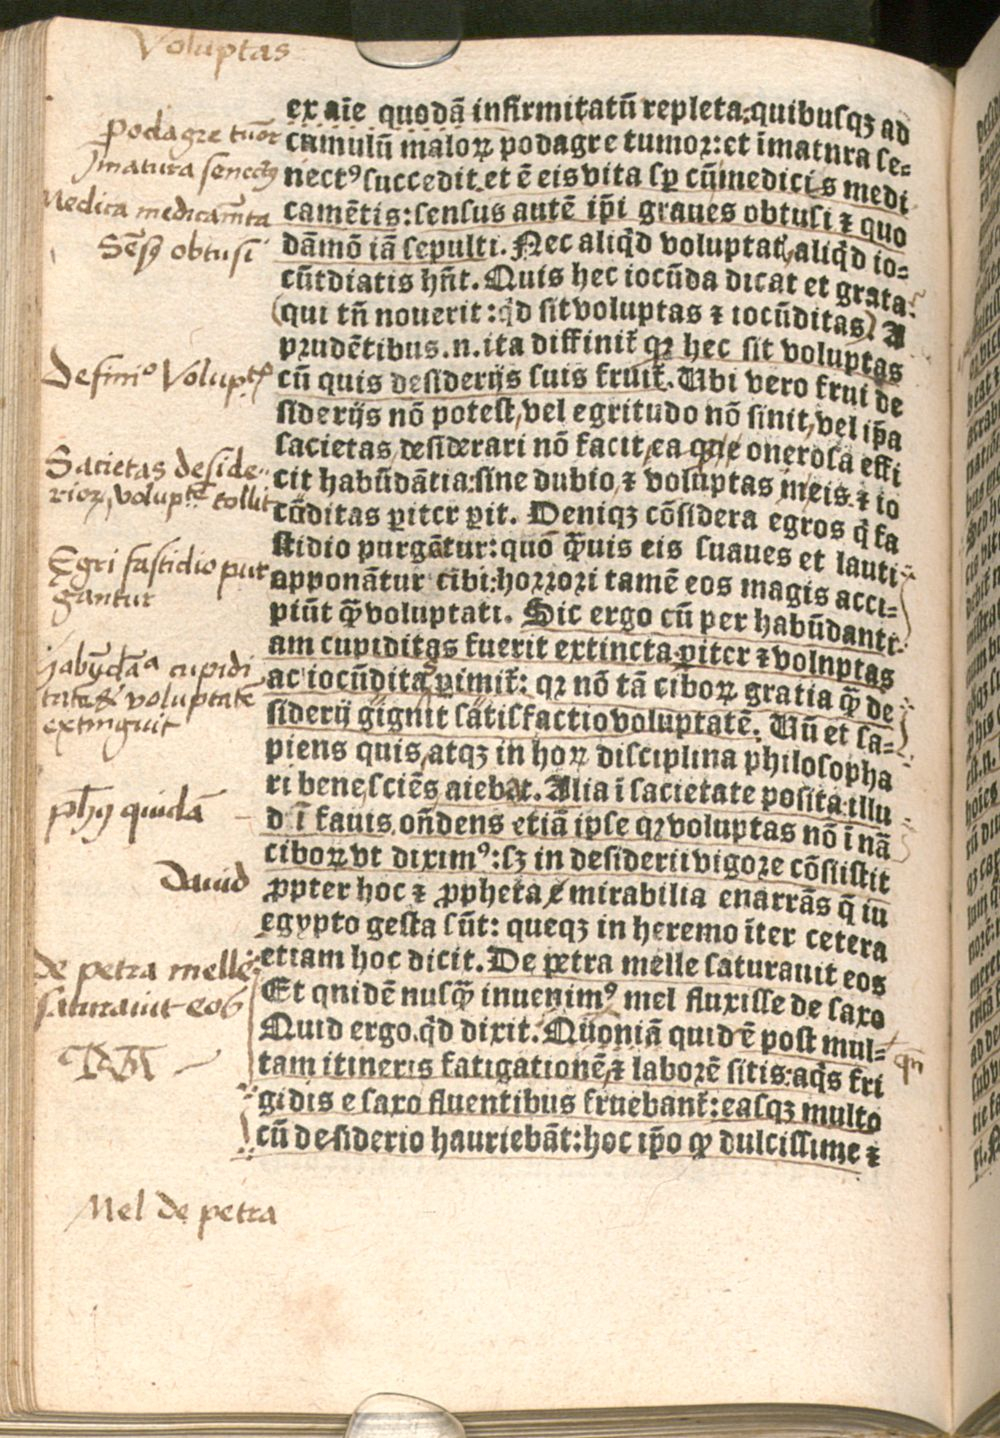 Voluptas
ex aīe quodā infirmitatū repleta: quibusqꝫ ad
cumulū maloꝝ podagre tumor: et īmatura se-
nectꝰ succedit. et ē eis vita sꝑ cū medicis medi
camētis: sensus autē ip̄i graues obtusi ⁊ quo
dāmō iā sepulti. Nec aliq̇d voluptatꝭ, aliq̇d io-
cūtdiatis hn̄t. Quis hec iocūda dicat et grata
(qui tn̄ nouerit: q̇d sit voluptas ⁊ iocūditas) A
prudētibus .n. ita diffinit̄ qꝛ hec sit voluptas
cū quis desiderijs suis fruit̄. Ubi vero frui de
siderijs nō potest, vel egritudo nō sinit, vel ip̄a
sacietas desiderari nō facit, ea que onerosa effi
cit habūdātia: sine dubio, ⁊ voluptas meis ⁊ io
cūditas ꝑiter ꝑit. Deniqꝫ cōsidera egros q̄ fa
stidio purgātur: quō q̄uis eis suaues et lauti
apponātur cibi: horrori tamē eos magis acci-
piūt q̄ voluptati. Sic ergo cū per habūdanti
am cupiditas fuerit extincta ꝑiter ⁊ voluptas
ac iocūditas ꝑimit̄: qꝛ nō tā ciboꝝ gratia q̄ de
siderij gignit satisfactio voluptatē. Un̄ et sa-
piens quis, atqꝫ in hoꝝ disciplina philosopha
ri bene, sciēs aiebat. Alia ī sacietate posita illu
d ī fauis, on̄dens etiā ipse qꝛ voluptas nō ī nā
ciboꝝ vt diximꝰ: sꝫ in desiderii vigore cōsistit
ꝓpter hoc ⁊ ꝓpheta mirabilia enarrās q̄ in
egypto gesta sūt: queqꝫ in heremo īter cetera
etiam hoc dicit. De petra melle saturauit eos
Et qnidē nusq̄ inuenimꝰ mel fluxisse de saxo
Quid ergo. q̇d dixit. Quoniā quid ē post mul-
tam itineris fatigationē, ⁊ laborē sitis: aq̇s fri
gidis e saxo fluentibus fruebant̄: easqꝫ multo
cū desiderio hauriebāt: hoc ip̄o ꝙ dulcissime ⁊
podagre tumor
Jmatura senectꝰ
Medica medicam̄ta
Sēsꝰ obtusi
Definiº Volupt̄
Sacietas deside
rioꝝ, volupt̄ē tollit
Egri fastidio pur
gantur
habūdāª cupidi
voluptatē
extinguit
phꝰ quidā
Dauid
de petra melle
saturauit eos
Mel de petra
qn̄